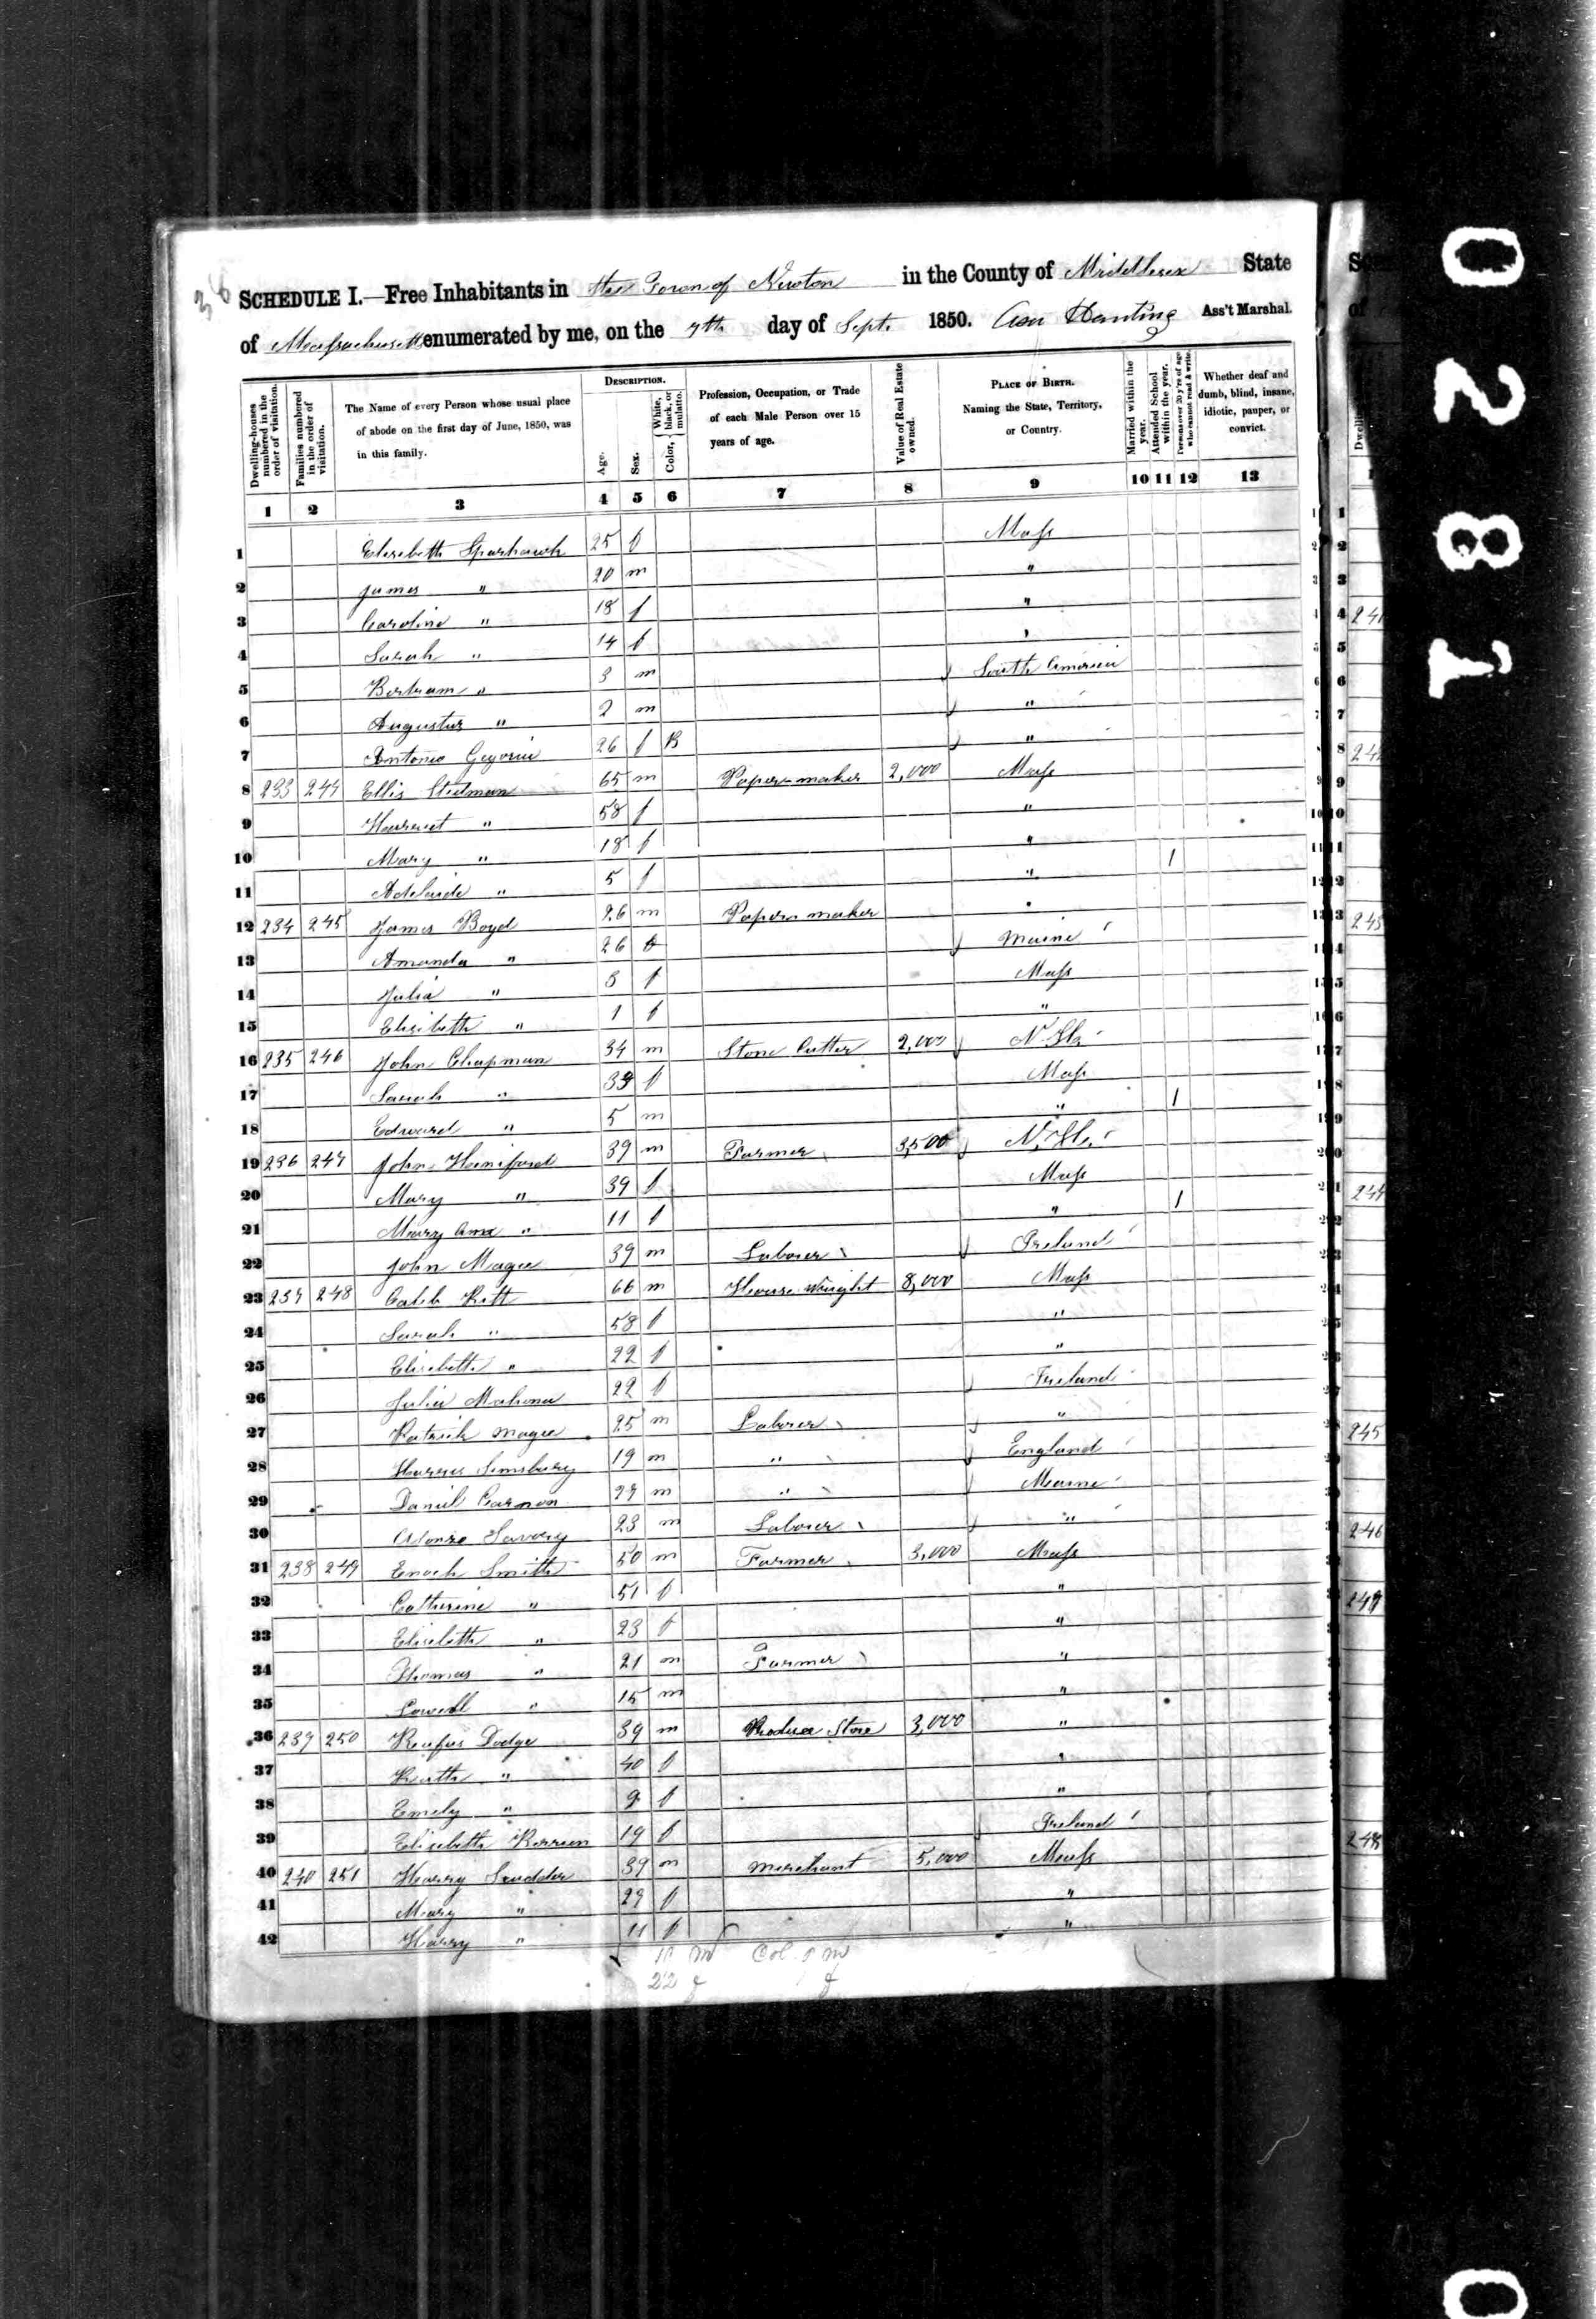 36
SCHEDULE I.—Free Inhabitants in the Town of Newton in the County of Middlesex State
of Massachusetts enumerated by me, on the 7th day of Sept. 1850. Asa Hunting Ass't Marshal.
Dwelling-houses numbered in the order of visitation. Families numbered in the order of visitation. The Name of every Person whose usual place of abode on the first day of June, 1850, was in this family. DESCRIPTION. Age. Sex. Color, { White, black, or mulatto. Profession, Occupation, or Trade of each Male Person over 15 years of age. Value of Real Estate owned. PLACE OF BIRTH. Naming the State, Territory, or Country. Married within the year. Attended School within the year. Persons over 20 y'rs of age who cannot read & write. Whether deaf and dumb, blind, insane, idiotic, pauper, or convict.
1 2 3 4 5 6 7 8 9 10 11 12 13
1 Elisebeth Sparhawk 25 f Mass
2 James " 20 m "
3 Caroline " 18 f "
4 Sarah " 14 f "
5 Bertram " 3 m South America
6 Augustus " 2 m "
7 Antonio 26 f B "
8 233 244 Ellis Stedman 65 m Paper maker 2,000 Mass
9 Harriet " 58 f "
10 Mary " 18 f "
11 Adelaide " 5 f " 1
12 234 245 James Boyd 26 m Paper maker "
13 Amanda " 26 f Maine
14 Julia " 3 f Mass
15 Elisebeth " 1 f "
16 235 246 John Chapman 34 m Stone Cutter 2,000 N. H.
17 Sarah " 34 f Mass
18 Edward " 5 m " 1
19 236 247 John Haniford 39 m Farmer 3,500 N. H.
20 Mary " 39 f Mass
21 Mary Ann " 11 f " 1
22 John Magee 39 m Laborer Ireland
23 237 248 Caleb 66 m House Wright 8,000 Mass
24 Sarah " 58 f "
25 Elisebeth " 22 f "
26 Julia Mahona 22 f Ireland
27 Patrick Magee 25 m Laborer "
28 Simsbury 19 m " England
29 Daniel Carnon 27 m " Maine
30 Alonzo Savory 23 m Laborer "
31 238 249 Enoch Smith 50 m Farmer 3,000 Mass
32 Catherine " 51 f "
33 Elisebeth " 23 f "
34 Thomas " 21 m Farmer "
35 Lowell " 15 m "
36 239 250 Rufus Dodge 39 m Produce Store 3,000 "
37 Ruth " 40 f "
38 Emely " 9 f "
39 Elisebeth 19 f Ireland
40 240 251 Harry Scudder 39 m Merchant 5,000 Mass
41 Mary " 29 f "
42 Harry " 11 f "
m Col. m
22 f f
0281
0